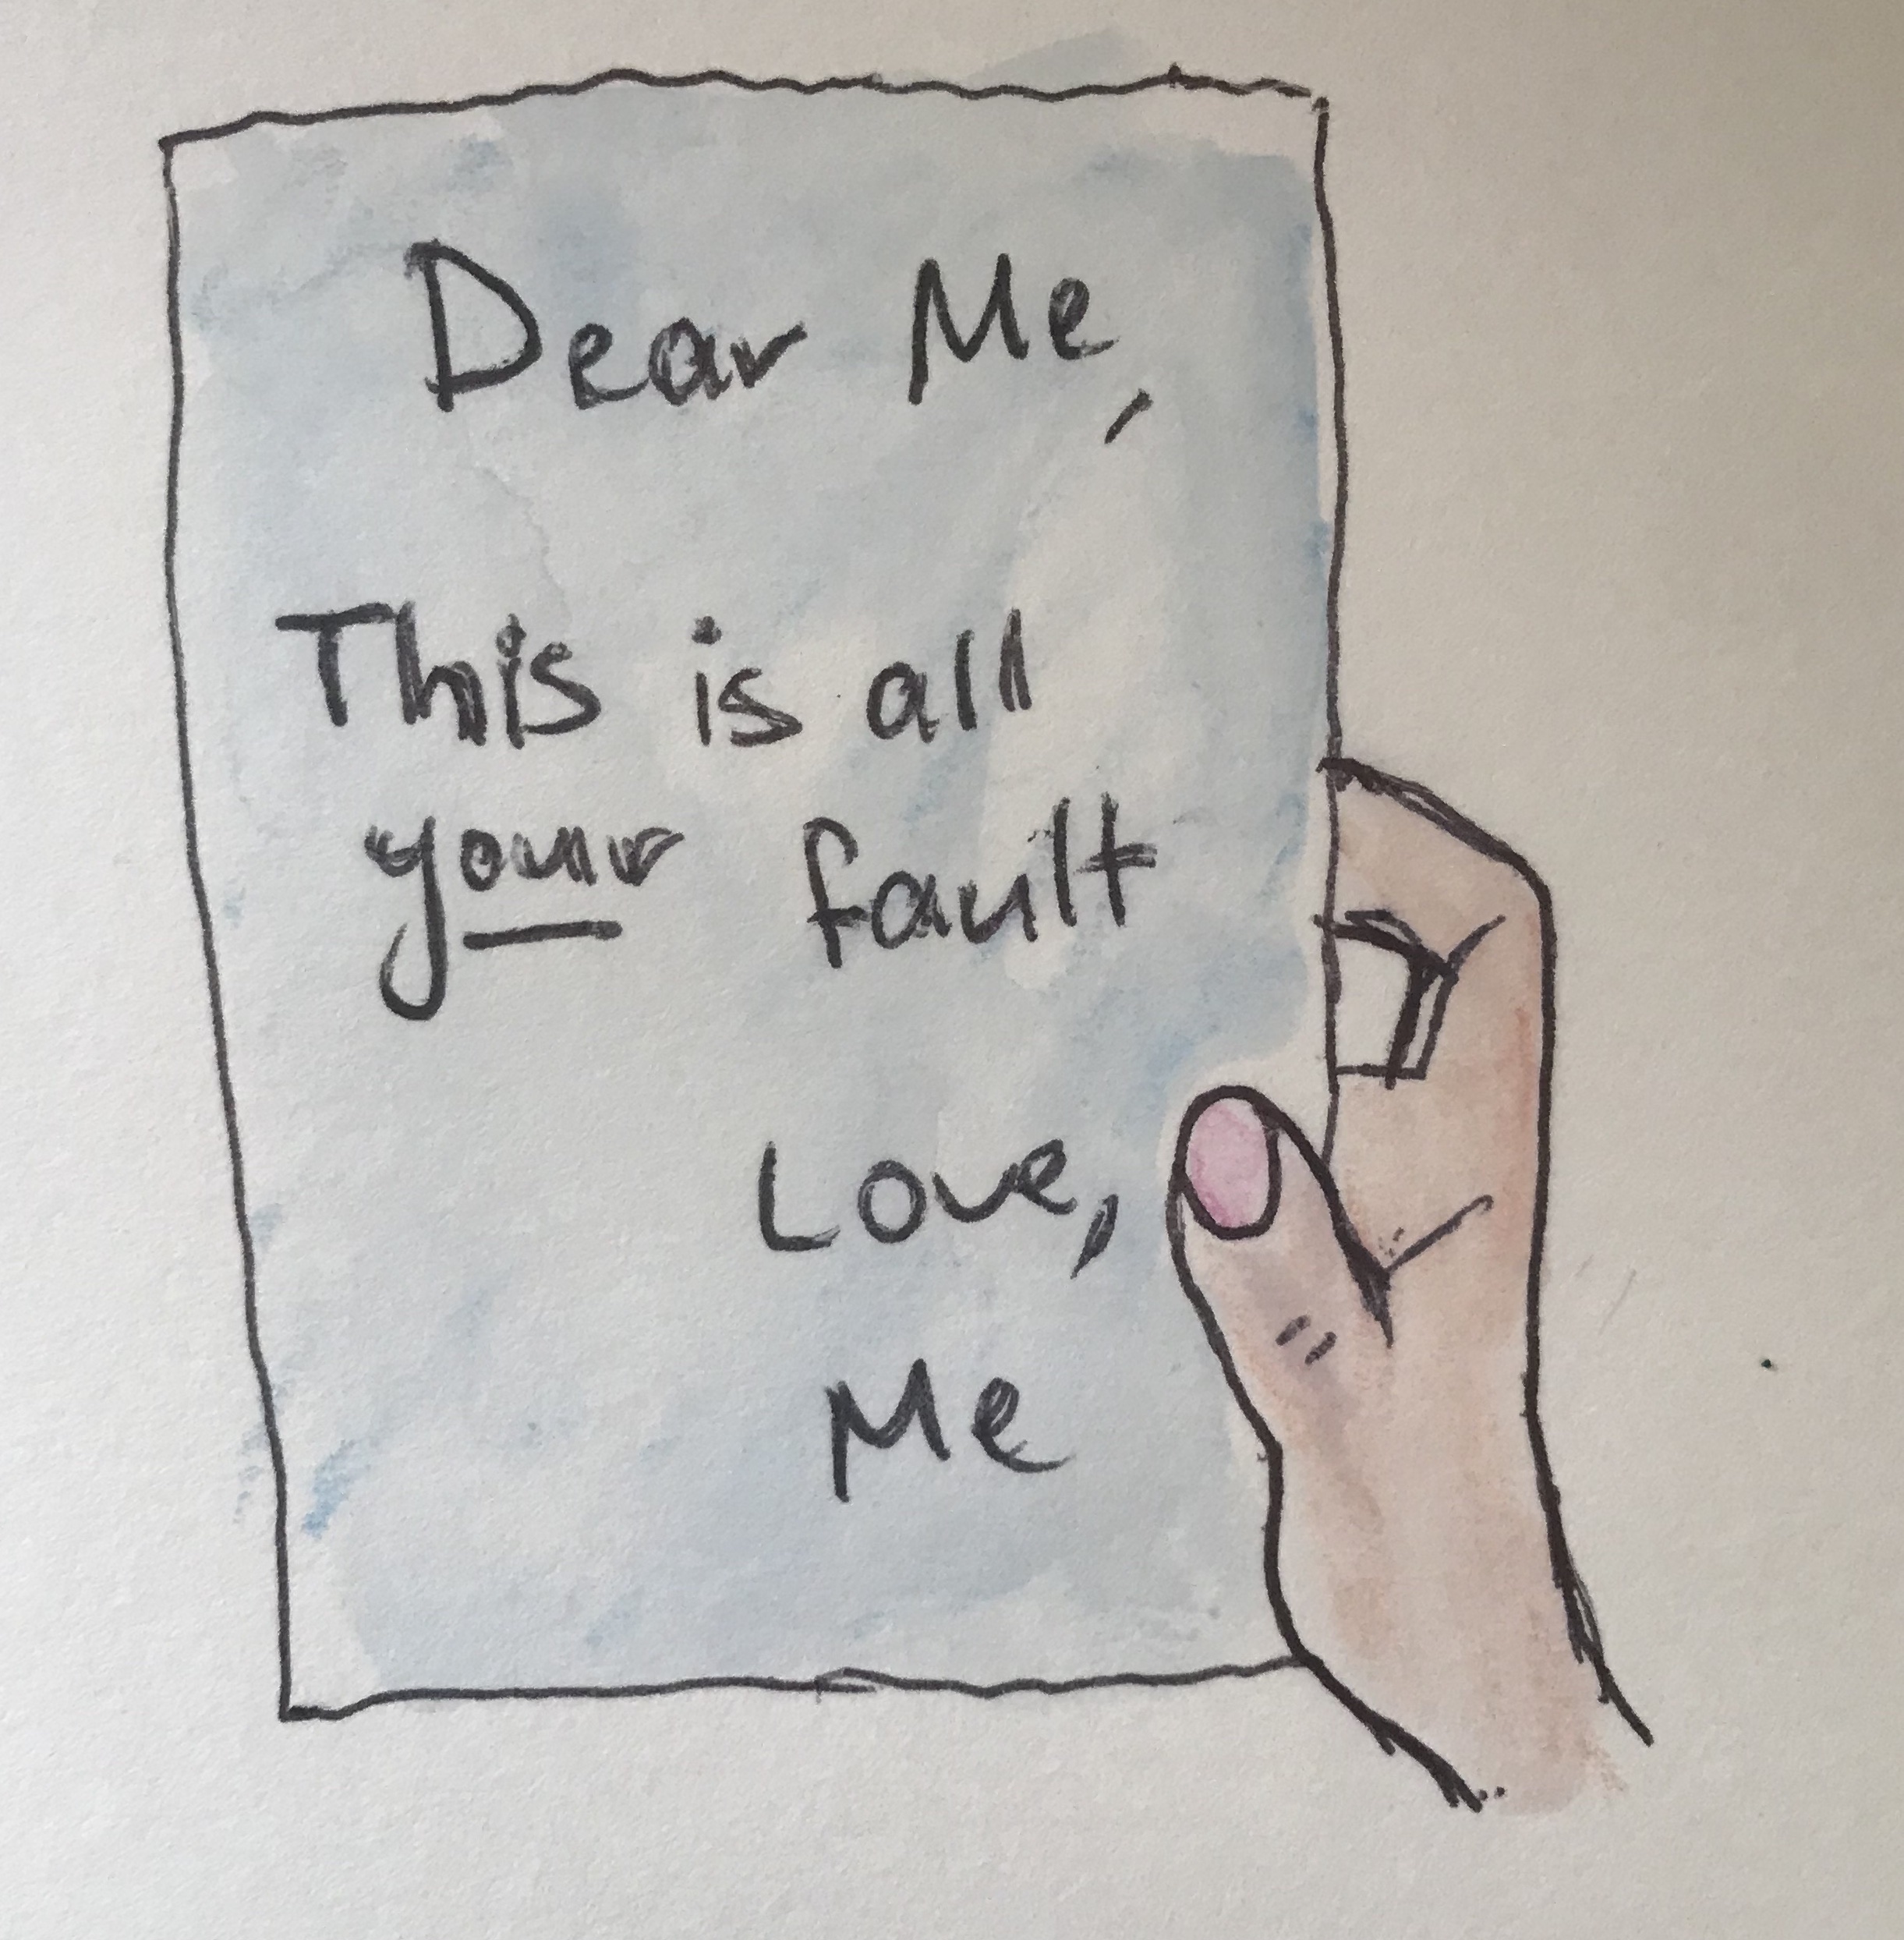 Dear Me,
This is all
your fault
Love,
Me